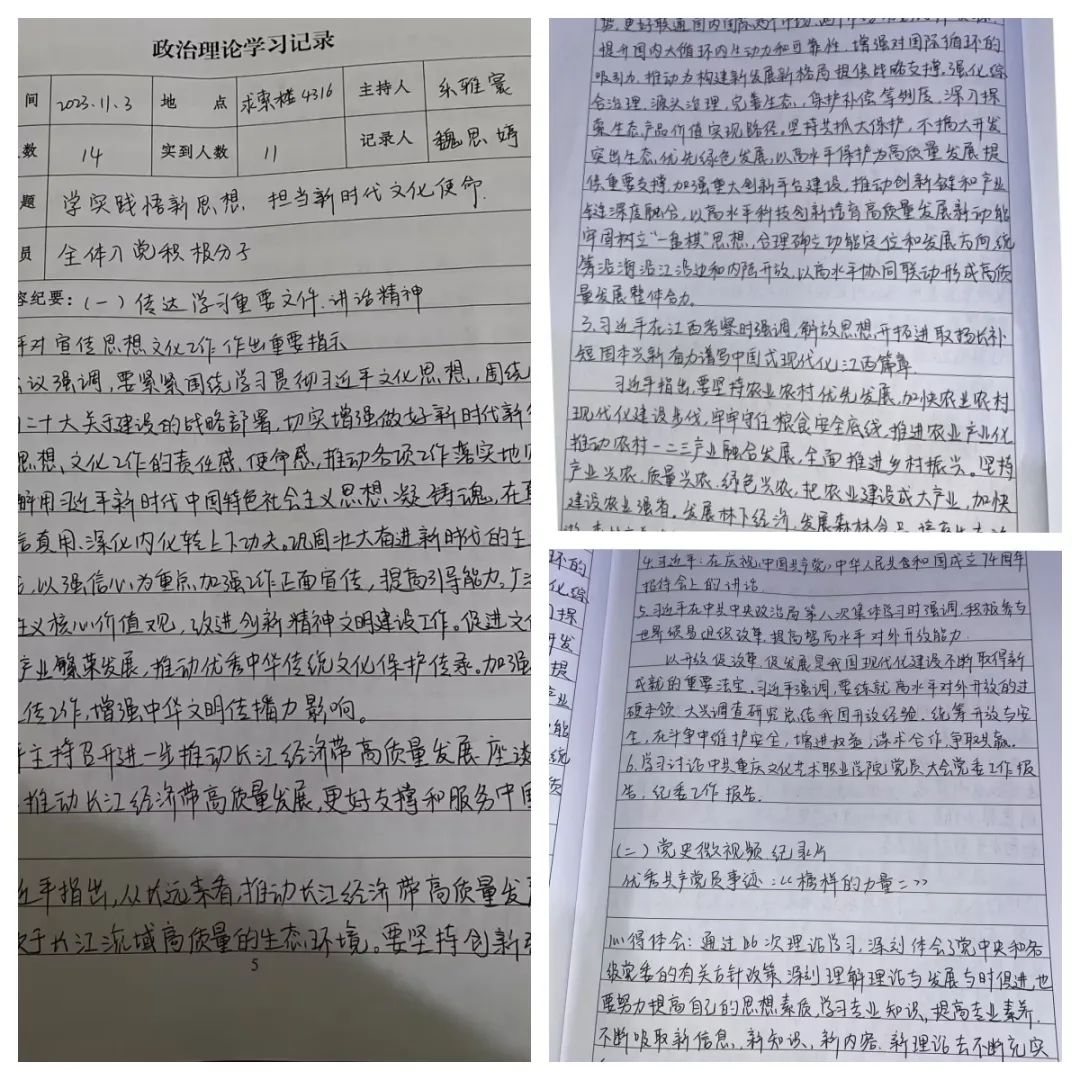 政治理论学习记录
间 2023.11.3 地 点 求索楼4316 主持人
数 14 实到人数 11 记录人 魏思婷
题 学实践悟新思想,担当新时代文化使命.
员 全体入党积极分子
容纪要:(一)传达学习重要文件.讲话精神
平对宣传思想文化工作作出重要指示
议强调,要紧紧围绕学习贯彻习近平文化思想,围绕
二十大关于建设的战略部署,切实增强做好新时代新
思想、文化工作的责任感,使命感,推动各项工作落实地
解用习近平新时代中国特色社会主义思想凝铸魂,在
信真用、深化内化转上下功夫。巩固壮大奋进新时代的主
,以强信心为重点加强工作正面宣传,提高引导能力,广
主义核心价值观,改进创新精神文明建设工作。促进文
产业繁荣发展,推动优秀中华传统文化保护传承。加强
传工作,增强中华文明传播力影响。
平主持召开进一步推动长江经济带高质量发展座谈
推动长江经济带高质量发展,更好支撑和服务中国
近平指出,从长远来看,推动长江经济带高质量发
于长江流域高质量的生态环境。要坚持创新
5
提升国内大循环内生动力和可靠性,增强对国际循环的
吸引力,推动为构建新发展新格局提供战略支撑。强化综
合治理,源头治理,完善生态,保护补偿等制度,深刀探
索生态产品价值实现路径。坚持共抓大保护,不搞大开发
突出生态优先绿色发展,以高水平保护为高质量发展提
供重要支撑.加强重大创新平台建设,推动创新链和产业
链深度融合,以高水平科技创新培育高质量发展新动能
牢固树立“一盘棋”思想,合理确立功能定位和发展方向,统
筹沿海沿江沿边和内陆开放,以高水平协同联动形成高质
量发展整体合力。
3.习近平在江西考察时强调,解放思想,开拓进取扬长补
短固本兴新奋力谱写中国式现代化江西篇章
习近平指出,要坚持农业农村优先发展,加快农业农村
现代化建设步伐,牢牢守住粮食安全底线,推进农业产业化
推动农村一二三产业融合发展,全面推进乡村振兴。坚持
产业兴农、质量兴农、绿色兴农,把农业建设成大产业,加快
建设农业强省。发展林下经济,发展森林食品
4.习近平:在庆祝中国共产党中华人民共合和国成立74周年
招待会上的讲话.
5.习近平在中共中央政治局第八次集体学习时强调,积极参与
世界贸易组织改革,提高驾高水平对外开放能力
以开放促改革、促发展是我国现代化建设不断取得新
成就的重要法宝。习近平强调,要练就高水平对外开放的过
硬本领.大兴调查研究总结我国开放经验.统筹开放与安
全,在斗争中维护安全,增进权益,谋求合作,争取共赢。
6.学习讨论中共重庆文化艺术职业学院党员大会党委工作报
告、纪委工作报告.
(二)党史微视频 纪录片
优秀共产党员事迹:《榜样的力量二》
心得体会:通过此次理论学习,深刻体会了党中央和各
级党委的有关方针政策,深刻理解理论与发展与时俱进,也
要努力提高自己的思想素质,学习专业知识,提高专业素养,
不断吸取新信息、新知识、新内容、新理论去不断充实